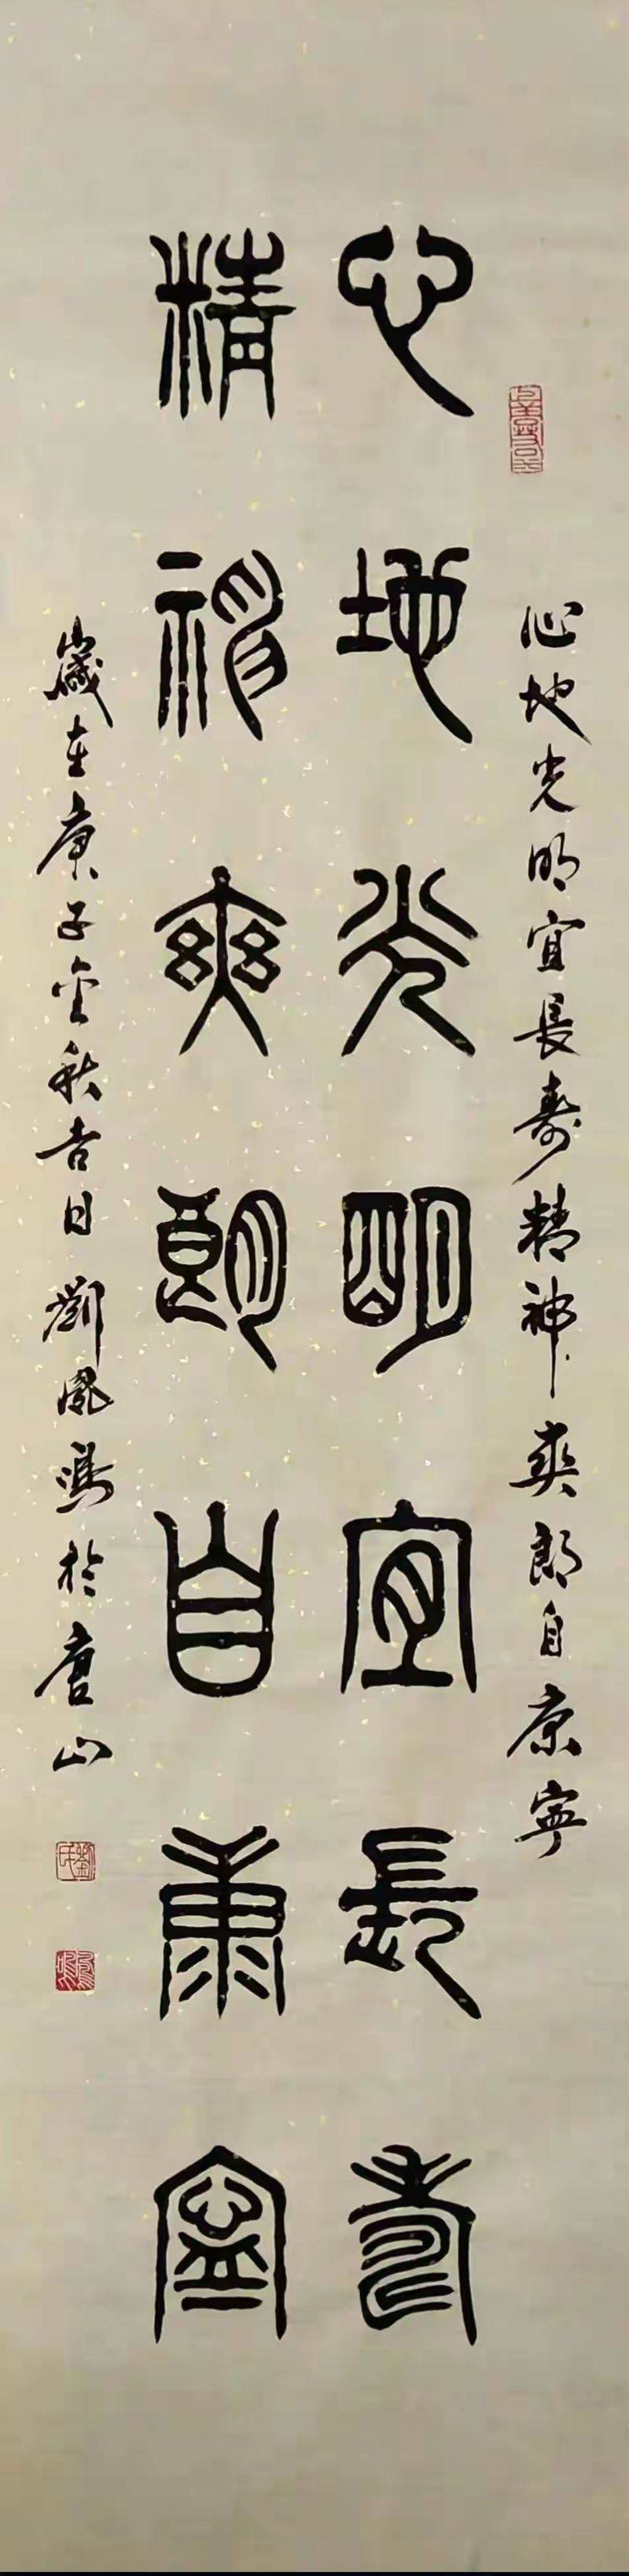 心地光明宜長壽精神爽朗自康寧
心地光明宜長壽
精神爽朗自康寧
歲在庚子金秋吉日劉鳳鳴於唐山
劉氏
鳳鳴